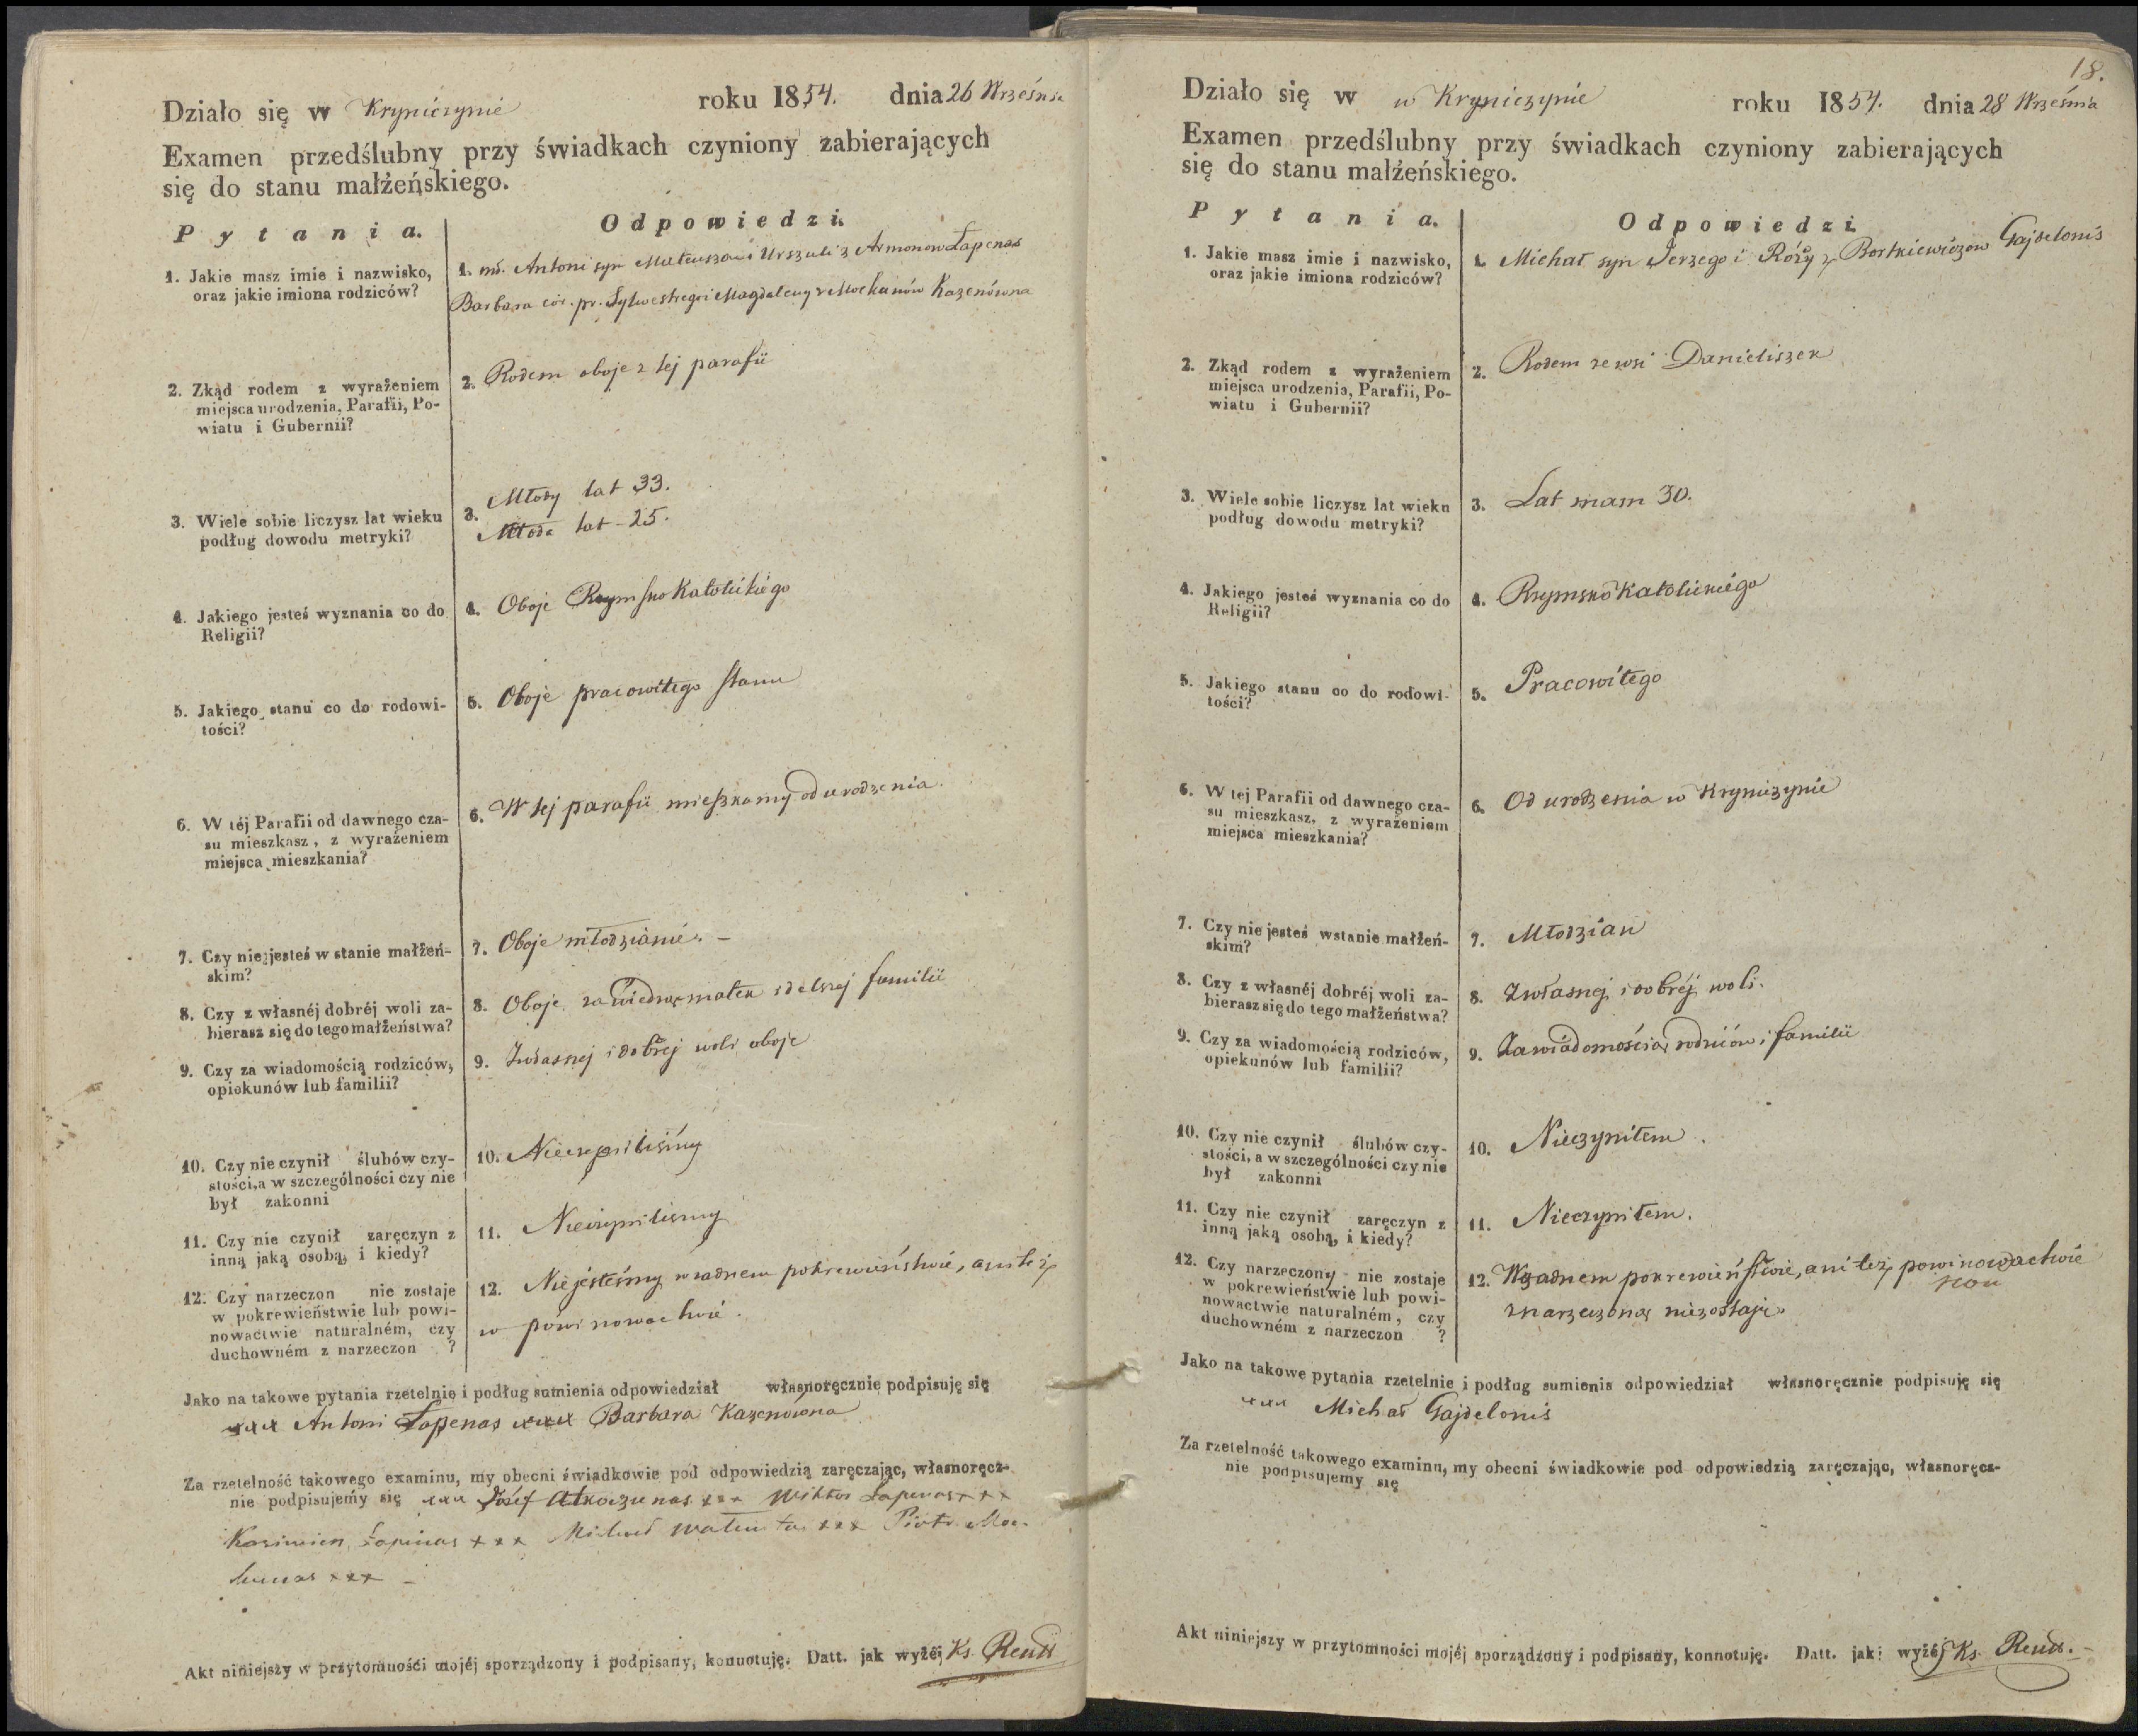 Działo się w Krynićzynie roku 1854. dnia 26 Września
Examen przedślubny przy świadkach czyniony zabierających
się do stanu małżeńskiego.
Pytania. Odpowiedzi.
1. Jakie masz imie i nazwisko,
oraz jakie imiona rodziców?
1. mł. Antoni syn Mateusza i Urszuli z Armonow Łapenas
Barbara cór. pr. Sylwestrego i Magdaleny z Mockunów Kazenówna
2. Zkąd rodem z wyrażeniem
miejsca urodzenia, Parafii, Po-
wiatu i Gubernii?
2. Rodem oboje z tej parafii
3. Wiele sobie liczysz lat wieku
podług dowodu metryki?
3. Młody lat 33.
Młoda lat 25.
4. Jakiego jesteś wyznania co do
Religii?
4. Oboje Rzymsko Katolickiego
5. Jakiego stanu co do rodowi-
tości?
5. Oboje pracowitego stanu
6. W téj Parafii od dawnego cza-
su mieszkasz, z wyrażeniem
miejsca mieszkania?
6. W tej parafii mieszkamy od urodzenia.
7. Czy nie jesteś w stanie małżeń-
skim?
7. Oboje młodzianie. –
8. Czy z własnéj dobréj woli za-
bierasz się do tego małżeństwa?
8. Oboje za wiedzą matek i familii
9. Czy za wiadomością rodziców,
opiekunów lub familii?
9. Zwłasnej i dobrej woli oboje
10. Czy nie czynił ślubów czy-
stości, a w szczególności czy nie
był zakonni
10. Nieczyniliśmy
11. Czy nie czynił zaręczyn z
inną jaką osobą, i kiedy?
11. Nieczynilismy
12. Czy narzeczon nie zostaje
w pokrewieństwie lub powi-
nowactwie naturalném, czy
duchowném z narzeczon ?
12. Niejesteśmy w żadnem pokrewieństwie, ani też
w powinowactwie.
Jako na takowe pytania rzetelnie i podług sumienia odpowiedział własnoręcznie podpisuję się
xxx Antoni Łapenas xxx Barbara Kazenówna
Za rzetelność takowego examinu, my obecni świadkowie pod odpowiedzią zaręczając, własnoręcz-
nie podpisujemy się xxx Józef Atkoczunas xxx Wiktor Łapenas xxx
Kazimierz Łapinas xxx Michał xxx Piotr Moc-
kunas xxx –
Akt niniejszy w przytomności mojéj sporządzony i podpisany, konnotuję. Datt. jak wyżéj Ks. Reutt
18.
Działo się w w Krynićzynie roku 1854. dnia 28 Września
Examen przedślubny przy świadkach czyniony zabierających
się do stanu małżeńskiego.
Pytania. Odpowiedzi.
1. Jakie masz imie i nazwisko,
oraz jakie imiona rodziców?
1. Michał syn Jerzego i Róży z Bortkiewiczów Gajdelonis
2. Zkąd rodem z wyrażeniem
miejsca urodzenia, Parafii, Po-
wiatu i Gubernii?
2. Rodem ze wsi Danieliszek
3. Wiele sobie liczysz lat wieku
podług dowodu metryki?
3. Lat mam 30.
4. Jakiego jesteś wyznania co do
Religii?
4. Rzymsko Katolickiego
5. Jakiego stanu co do rodowi-
tości?
5. Pracowitego
6. W tej Parafii od dawnego cza-
su mieszkasz, z wyrażeniem
miejsca mieszkania?
6. Od urodzenia w Krynićzynie
7. Czy nie jesteś wstanie małżeń-
skim?
7. Młodzian
8. Czy z własnéj dobréj woli za-
bierasz się do tego małżeństwa?
8. Zwłasnej i dobréj woli.
9. Czy za wiadomością rodziców,
opiekunów lub familii?
9. Zawiadomością rodziców i familii
10. Czy nie czynił ślubów czy-
stości, a w szczególności czy nie
był zakonni
10. Nieczyniłem.
11. Czy nie czynił zaręczyn z
inną jaką osobą, i kiedy?
11. Nieczyniłem.
12. Czy narzeczony nie zostaje
w pokrewieństwie lub powi-
nowactwie naturalném, czy
duchowném z narzeczon ?
12. Wżadnem pokrewieństwie, ani też powinowactwie
znarzeczoną niezostaję.
Jako na takowe pytania rzetelnie i podług sumienia odpowiedział własnoręcznie podpisuję się
xxx Michał Gajdelonis
Za rzetelność takowego examinu, my obecni świadkowie pod odpowiedzią zaręczając, własnoręcz-
nie podpisujemy się
Akt niniejszy w przytomności mojéj sporządzony i podpisany, konnotuję. Datt. jak wyżéj Ks. Reutt. –